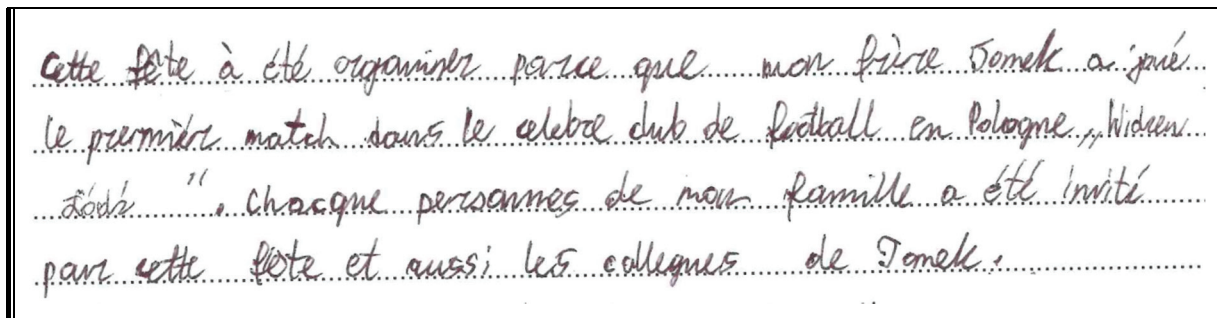 Cette fête à été organiner parce que mon frère Tomek a joué
le premmière match dans le celebre club de football en Pologne „Widzew
Łódź ". Chacque personnes de mon famille a été invité
pour cette fête et aussi les collegues de Tomek.